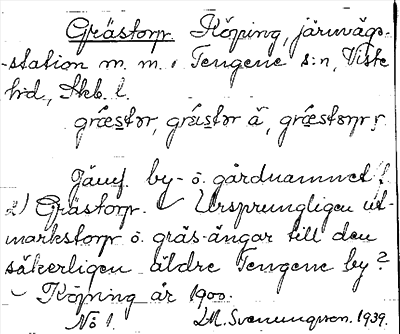 Grästorp Köping, järnvägs-
-station m. m. i Tengene s:n, Viste
hd, Skb. l.
græstər, græstər å, græstərp
Jämf. by- o. gårdnamnet
2) Grästorp. Ursprungligen ut-
markstorp o. gräs-ängar till den
säkerligen äldre Tengene by?
Köping år 1900.
No 1. Svenungsson. 1939.